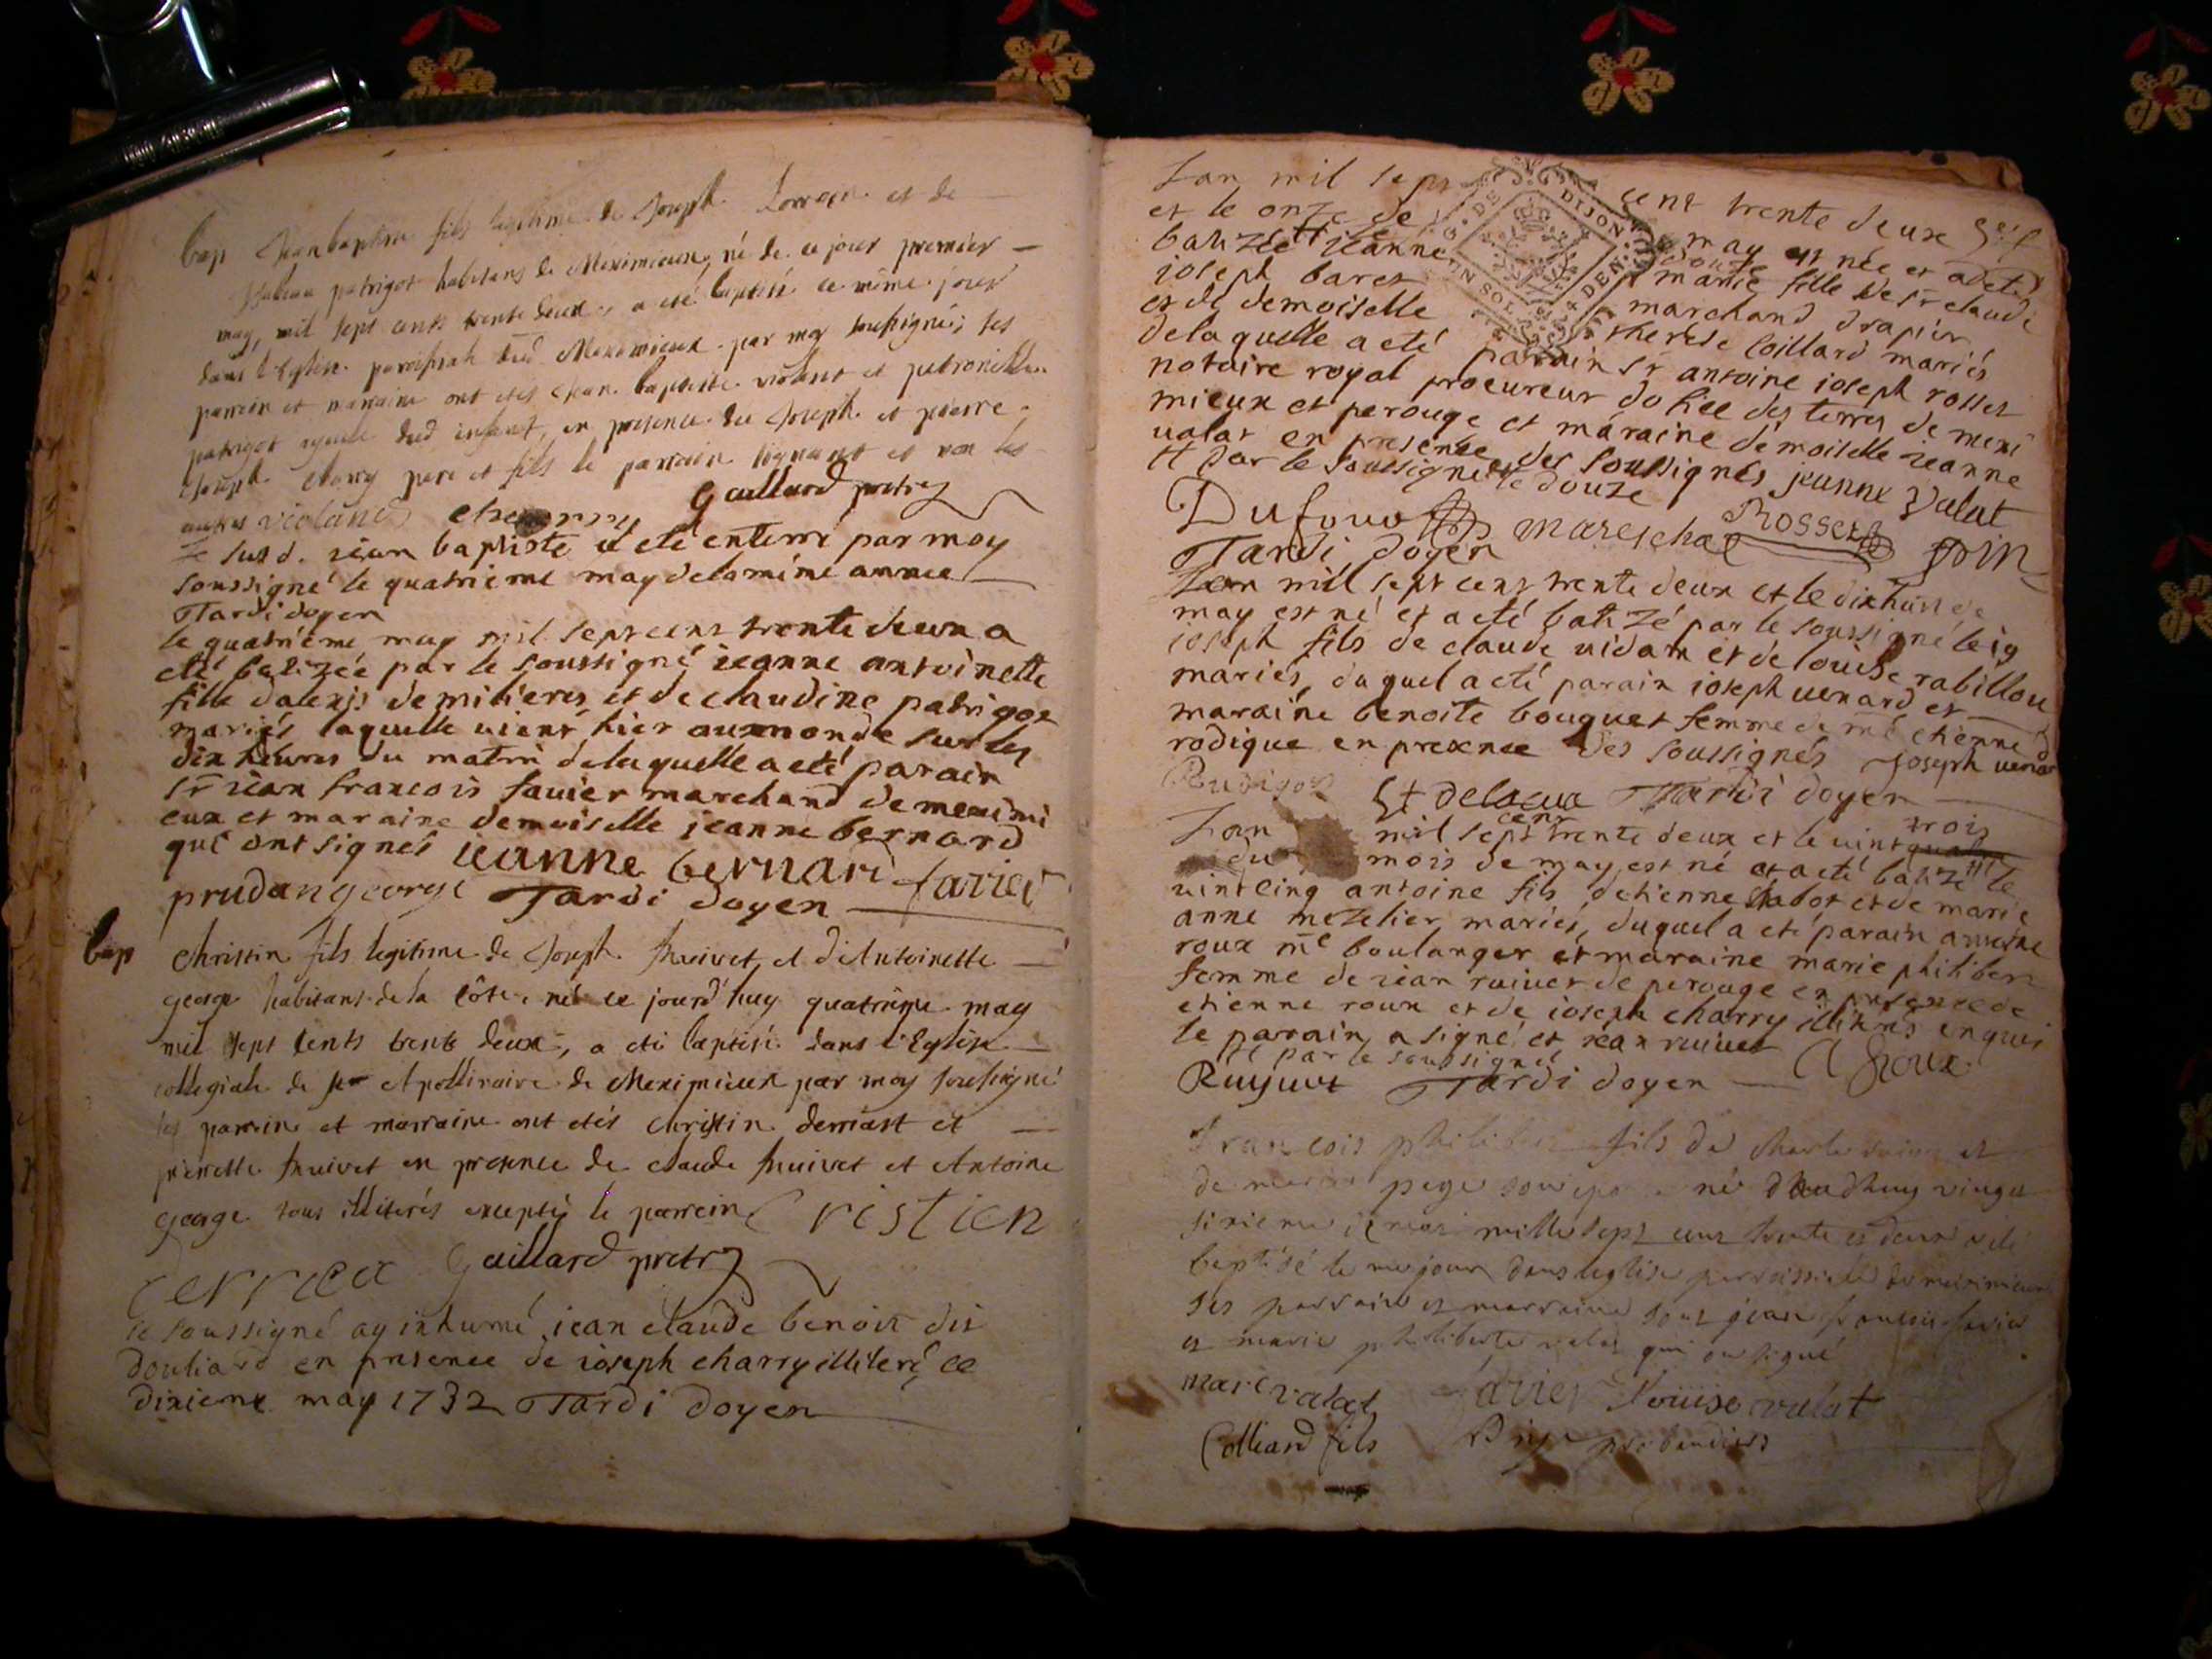 bap Jean baptiste fils legitime de Joseph et de
patrigot habitans de Meximieux, né de ce jour premier
may, mil sept cents trente deux, a eté baptisé ce même jour
dans l'Eglise paroissiale dud Meximieux par moy soussigné; ses
parrein et marraine ont etes Jean baptiste violand et petronille
patrigot ayeule dud enfant, en presence de Joseph et pierre
Joseph Charry pere et fils le parrein signant et non les
autres violand charry Gaillard pretre
Le susd. iean baptiste a eté enterré par moy
soussigné le quatrieme may de la même année
Tardi doyen
le quatrième may mil sept cens trente deux a
eté batizée par le soussigné ieanne antoinette
fille dalexis demilieres et de claudine patrigot
mariés laquelle vient hier aux monde sur les
dix heures du matin de laquelle a eté parain
sr iean francois favier marchand de meximi
eux et maraine demoiselle ieanne bernard
qui ont signés ieanne bernard favier
prudan george Tardi doyen
bap Christin fils legitime de Joseph ruivet et d'Antoinette
george habitans de la Côte, né ce jourd'huy quatrième may
mil sept cents trente deux, a eté baptisé dans l'Eglise
collegiale de st Apollinaire de Meximieux par moy soussigné
les parrein et marraine ont etés Christin derriast et
pierrette ruivet en presence de claude ruivet et Antoine
george tous illiterés excepté le parrein Cristien
Gaillard pretre
ie soussigné ay inhumé iean claude benoit dit
douliard en presence de ioseph charry illiteré ce
dixieme may 1732 Tardi doyen
Lan mil sept cent trente deux
et le onze de may est née et a eté
batizée ieanne marie fille de sr claude
ioseph baret marchand drapier
et de demoiselle therese Coillard mariés
de laquelle a eté parain sr antoine ioseph rosset
notaire royal procureur dofice des terres de mexi
mieux et perouge et maraine demoiselle ieanne
valat en presence des soussignés jeanne Valat
par le soussigné le douze
Dufour mareschal Rosset
Tardi doyen
Lan mil sept cens trente deux et le dixhuit de
may est né et a eté batizé par le soussigné le 19
ioseph fils de claude vidam et de louise rabillou
mariés, duquel a eté parain ioseph venard et
maraine benoite bouquet femme de me etienne
rodique en presence des soussignés Joseph venar
Rudigoz delacua Tardi doyen
Lan mil sept cens trente deux et le vint trois
du mois de may est né et a eté batizé le
vintcinq antoine fils detienne et de marie
anne metelier mariés, duquel a eté parain antoine
roux me boulanger et maraine marie philiber
femme de iean ruivet de perouge en presence de
etienne roux et de ioseph charry illiterés enquis
le parain a signé et iean ruivet
par le soussigné
Ruyuet Tardi doyen A Roux
francois philibert fils de charle et
de marie page son né daudhuy vingt
sixieme mai mille sept cens trente et deux a eté
baptisé le me jour dans leglise parroissiale de meximieux
ses parrain et marraine sont jean francois favier
et marie philiberte valat qui ont signé
marc valat favier Louise valat
Colliard fils